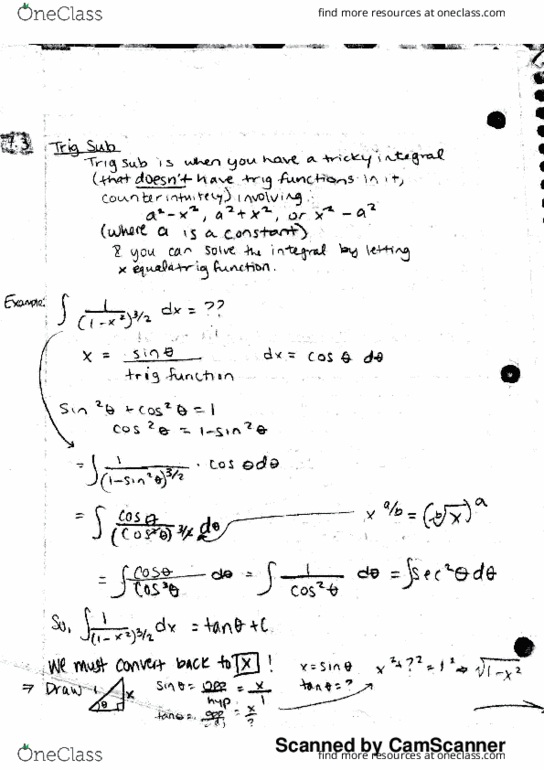 OneClass
find more resources at oneclass.com
7.3 Trig Sub
Trig sub is when you have a tricky integral
(that doesn't have trig functions in it,
counterintuitely) involving:
a² - x², a² + x², or x² - a²
(where a is a constant)
& you can solve the integral by letting
x equal a trig function.
Example: ∫ 1/(1-x²)^3/2 dx = ??
x = sin θ dx = cos θ dθ
trig function
sin²θ + cos²θ = 1
cos²θ = 1 - sin²θ
= ∫ 1/(1-sin²θ)^3/2 · cos θ dθ
= ∫ cos θ/(cos²θ)^3/2 dθ x^a/b = (ᵇ√x)^a
= ∫ cosθ/cos³θ dθ = ∫ 1/cos²θ dθ = ∫ sec²θ dθ
So, ∫ 1/(1-x²)^3/2 dx = tan θ + C.
We must convert back to x! x = sin θ x² + ?² = 1² ⇒ √1-x²
⇒ Draw 1 x θ sin θ = opp/hyp = x/1 tan θ = ?
tan θ = opp/ = x/?
Scanned by CamScanner
OneClass
find more resources at oneclass.com